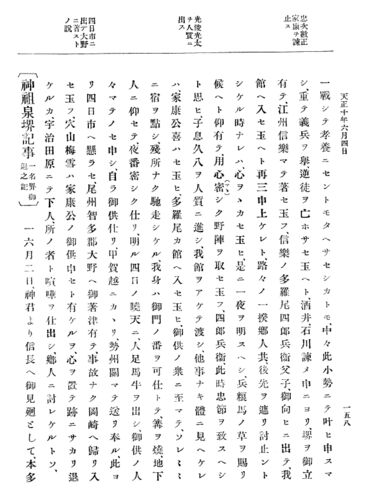 天正十年六月四日
一五八
忠次數正
家康ヲ諫
止ス
光俊光太
ヲ人質ニ
出ス
四日市ニ
出デ大野
ニ著スト
ノ說
一戰シテ孝養ニセントモタヘサセシカトモ中々此小勢ニテ叶ヒ申スマ
シ、重テ義兵ヲ擧逆徒ヲ亡ホサセ玉ヘト酒井石川諫メ申ニヨリ、堺ヲ御立
有テ江州信樂マテ著セ玉フ、信樂ノ多羅尾四郎兵衞父子、御向ヒニ出テ、我
館ヘ入セ玉ヘト再三申上ケレト、路々ノ一揆鄉人共、後先ヲ遮リ討止ント
シケル時ナレハ、心ヲヽカセ玉ヒ、是ニ一夜ヲ明スヘシ、兵粮馬ノ草ヲ賜リ
候ヘト仰有テ、用心密シク野陣ヲ取セ玉フ、四郎兵衞此時忠節ヲ致スヘシ
ト思ヒ子息久八ヲ人質ニ進シ、我館ヲアケテ渡シ、他事ナキ體ニ見ヘケレ
ハ家康公喜ハセ玉ヒ、多羅尾カ館ヘ入セ玉ヒ、御供ノ衆ニ至マテ、ソレ〳〵
ニ宿ヲ點シ、殘所ナク馳走シケル、我身ハ御門ノ番ヲ可仕トテ、篝ヲ燒、地下
人ヲ仰セテ夜番密シク仕リ、明ル四日ノ曉天ニ、人足馬牛ヲ出シ、御供ノ人
々マテノセ申シ、自ラ御供仕リ、甲賀越ニカヽリ、勢州關マテ送リ奉ル、此ヨ
リ四日市ヘ懸ラセ尾州智多郡大野ヘ御著津有テ事故ナク岡崎ヘ歸リ入
セ玉フ、穴山梅雪ハ家康公ノ御供申セト有ケルヲ、心ヲ置テ跡ニサカリ退
ケルカ、宇治田原ニテ、下人、所ノ者ト喧嘩ヲ仕出シ鄉人ニ討レケルトソ、
〔神祖泉堺記事〕一名堺御
退之記 一六月二日、神君より信長へ御見廻として、本多